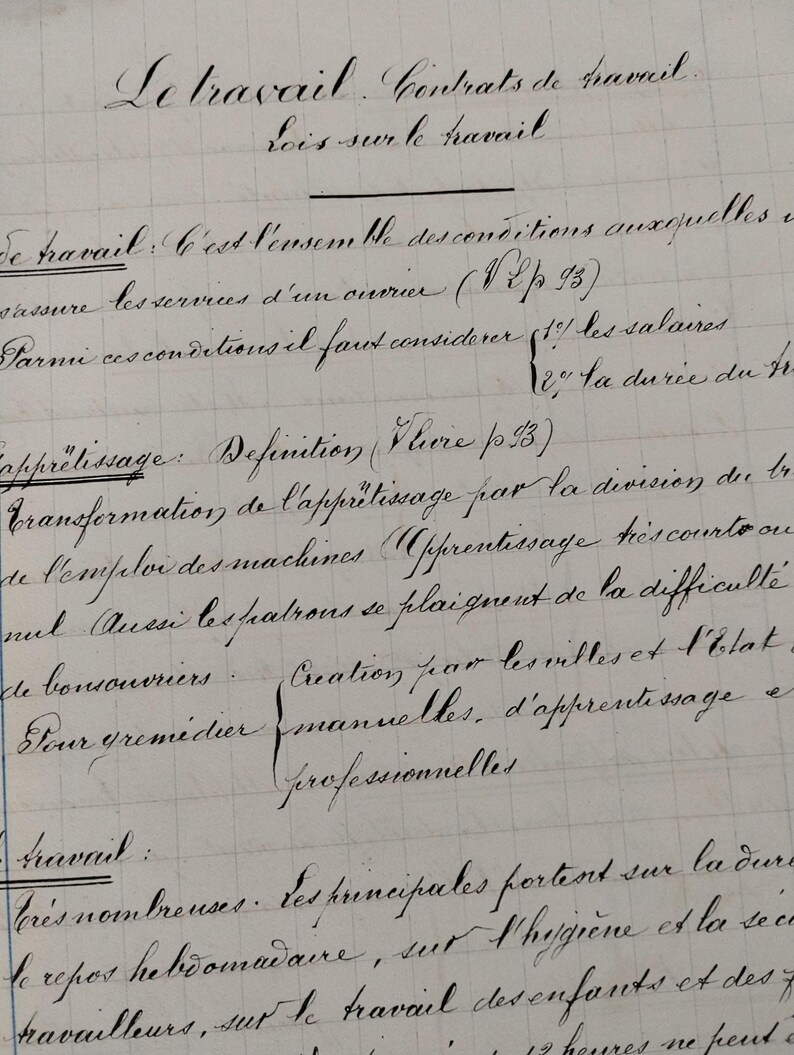 Le travail. Contrats de travail.
Lois sur le travail
de travail : C'est l'ensemble des conditions auxquelles
s'assure les services d'un ouvrier (V L p 93)
Parmi ces conditions il faut considerer { 1% les salaires
2% la durée du tr
apprëtissage : Definition (V livre p 93)
Transformation de l'apprëtissage par la division du tr
de l'emploi des machines Apprentissage très courts ou
nul Aussi les patrons se plaignent de la difficulté
de bons ouvriers.
Creation par les villes et l'Etat
Pour y remédier { manuelles, d'apprentissage e
professionnelles
travail :
Trés nombreuses. Les principales portent sur la duré
le repos hebdomadaire, sur l'hygiène et la sécu
travailleurs, sur le travail des enfants et des f
12 heures ne peut